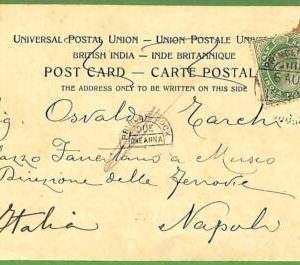 UNIVERSAL POSTAL UNION – UNION POSTALE UNIVE
BRITISH INDIA – INDE BRITANNIQUE
POST CARD – CARTE POSTAL
THE ADDRESS ONLY TO BE WRITTEN ON THIS SIDE
ig. Osvaldo
DUE
ONE ANNA
a Museo
Direzione delle Ferrovie
Italia Napoli